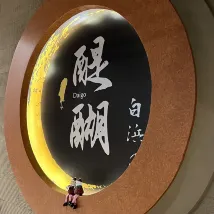 醍醐
Daigo
白浜